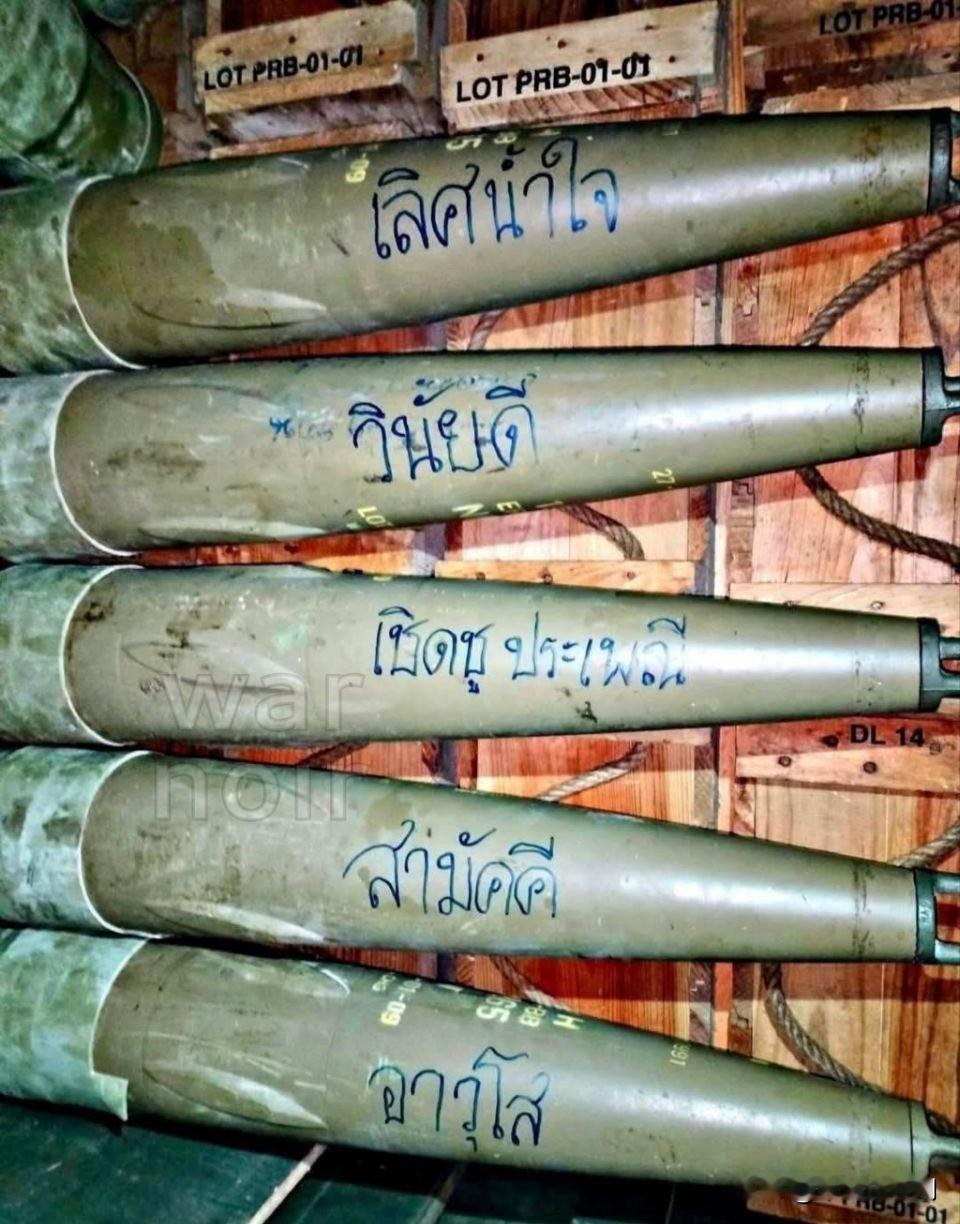 LOT PRB-01-01
LOT PRB-01-01
LOT PRB-01
เลิศน้ำใจ
วินัยดี
27
เชิดชู ประเพณี
war
noir
DL 14
สามัคคี
อาวุโส